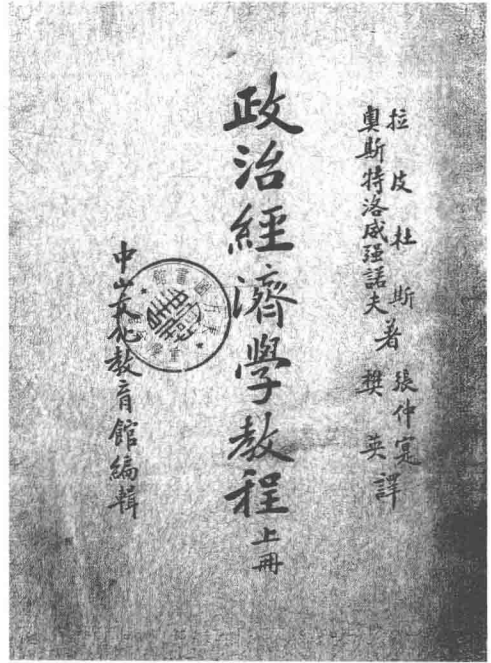 拉皮杜斯
奧斯特洛威強諾夫著
張仲寔
樊英譯
政治經濟學教程上冊
中山文化教育館編輯